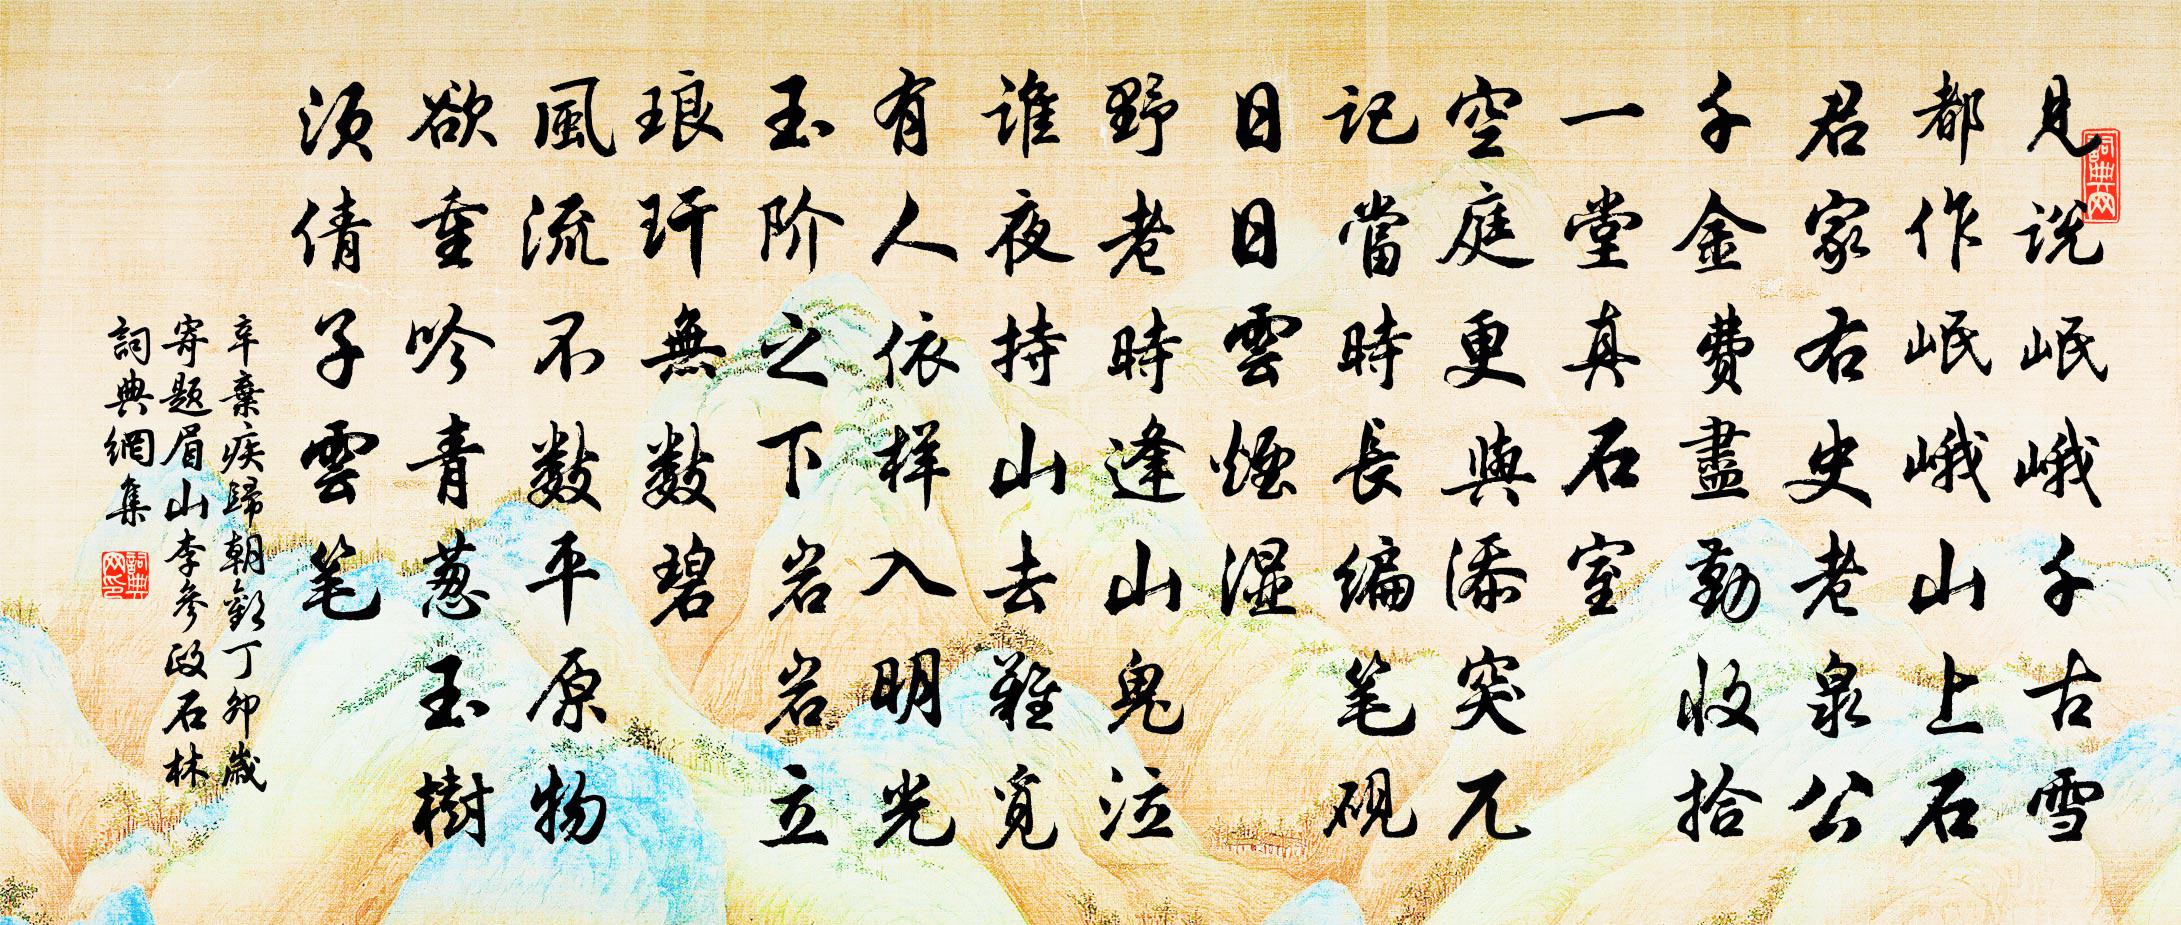 見说岷峨千古雪
都作岷峨山上石
君家右史老泉公
千金費盡勤收拾
一堂真石室
空庭更與添突兀
记當時長编笔砚
日日雲煙湿
野老時逢山鬼泣
谁夜持山去難觅
有人依样入明光
玉阶之下岩岩立
琅玕無数碧
風流不数平原物
欲重吟青葱玉樹
须倩子雲笔
辛棄疾歸朝歡丁卯歲
寄题眉山李参政石林
詞典網集
詞典网
詞典网印